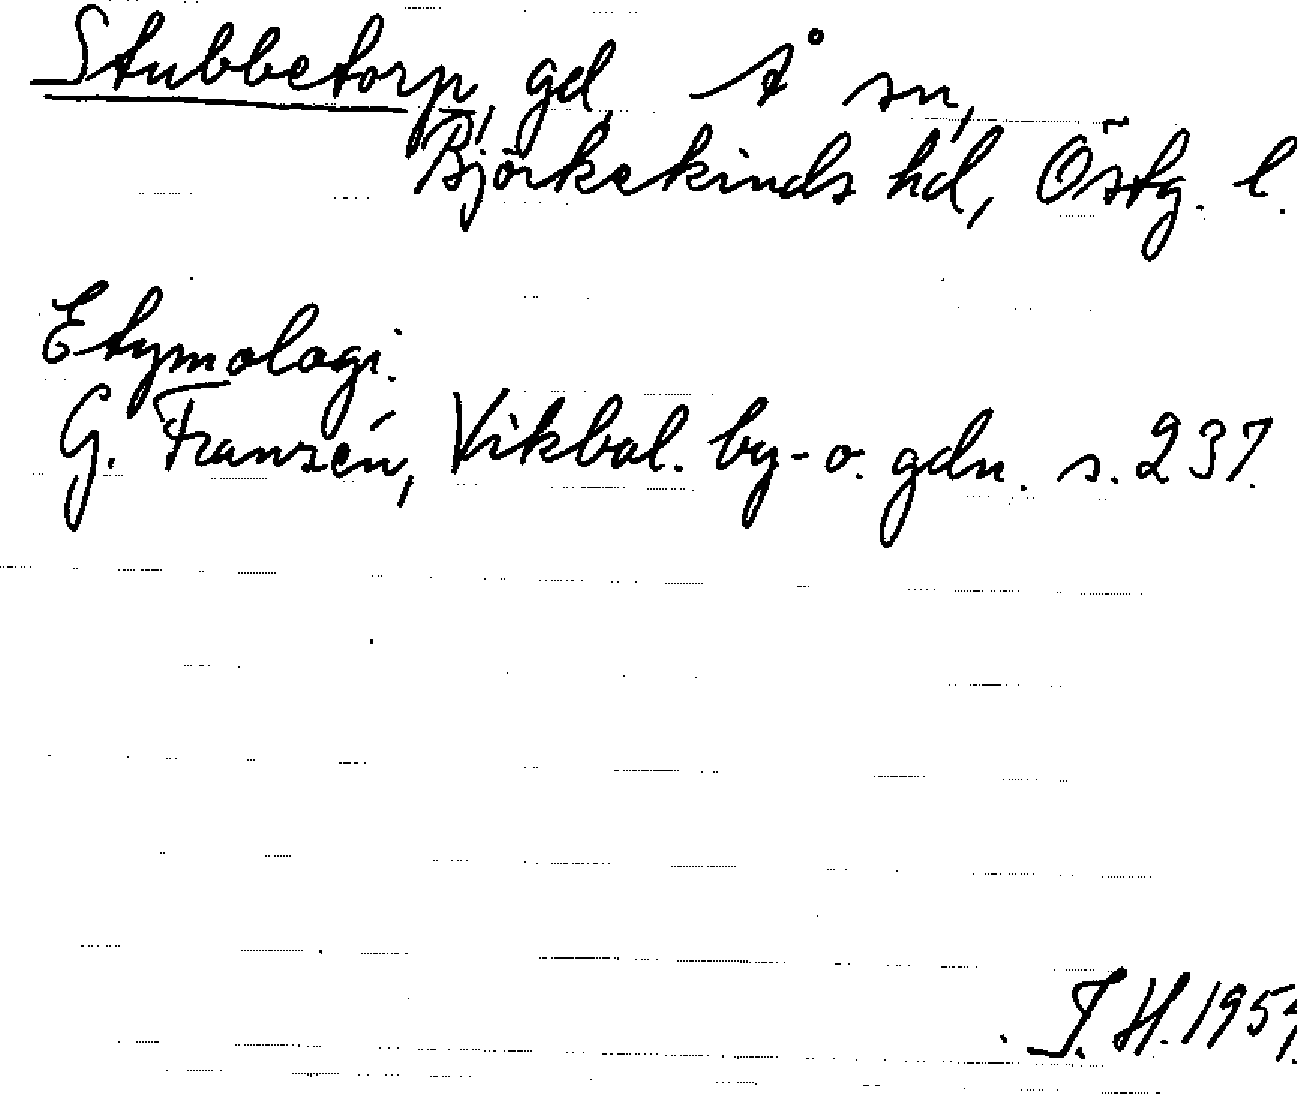 Stubbetorp, gd, Å sn,
Björkekinds hd, Östg. l.
Etymologi.
G. Franzén, Vikbol. by- o. gdn. s. 237.
J. H. 1954.